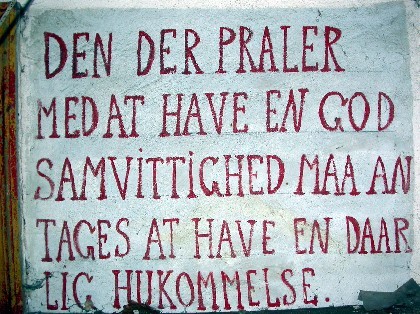 DEN DER PRALER
MED AT HAVE EN GOD
SAMVITTIGHED MAA AN
TAGES AT HAVE EN DAAR
LIG HUKOMMELSE.